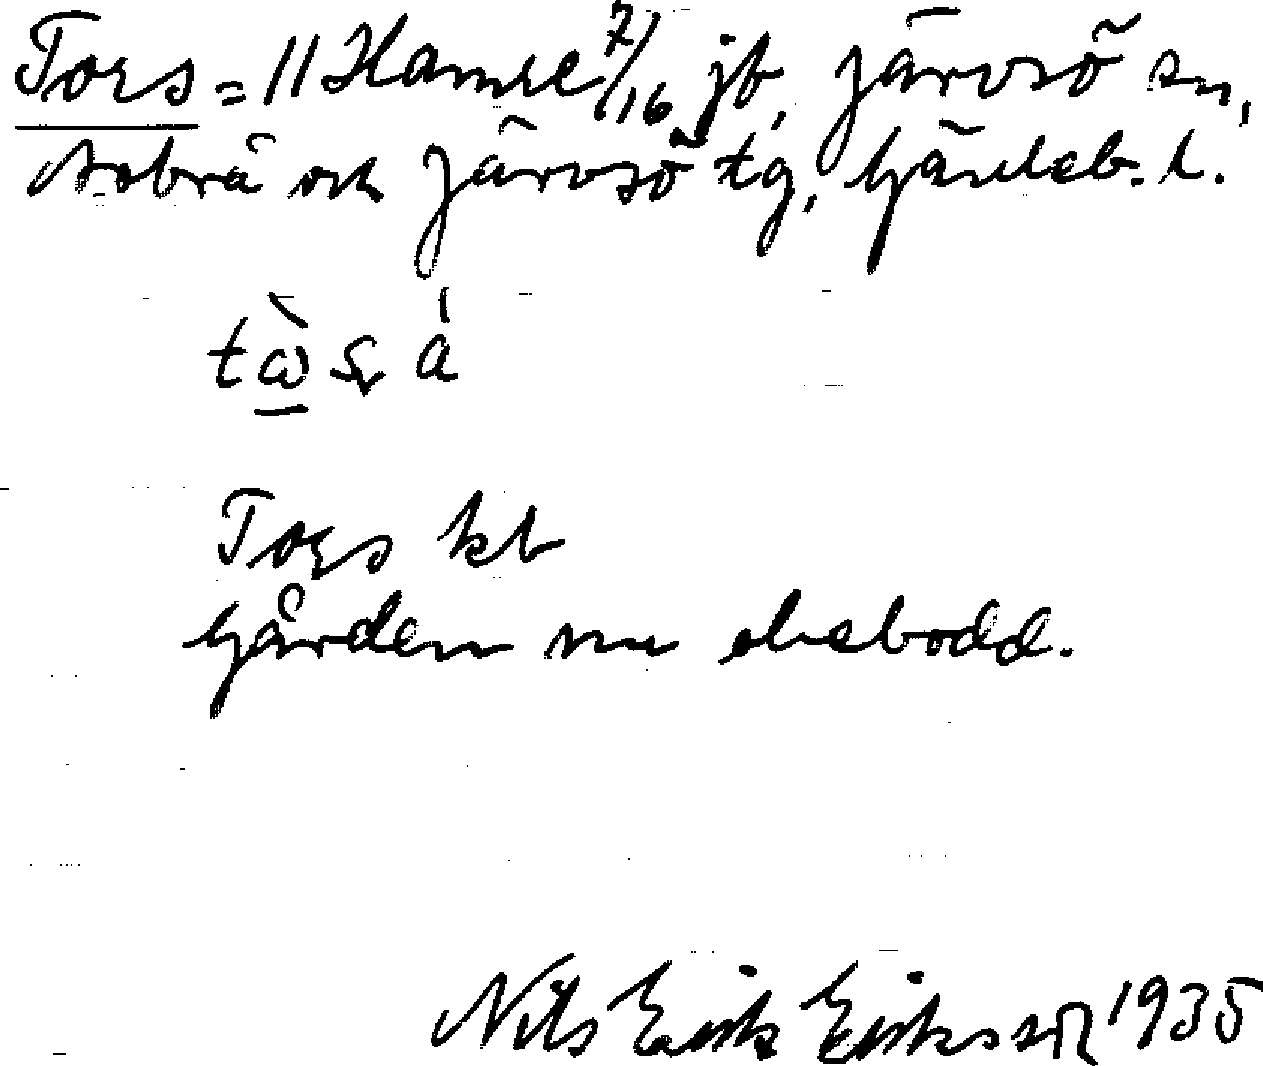 Tors = 11 Hamre 7/16 jb, Järvsö sn,
Arbrå och Järvsö tg, Gävleb. l.
Tors kb
Gården nu obebodd.
Nils Erik Eriksson 1935